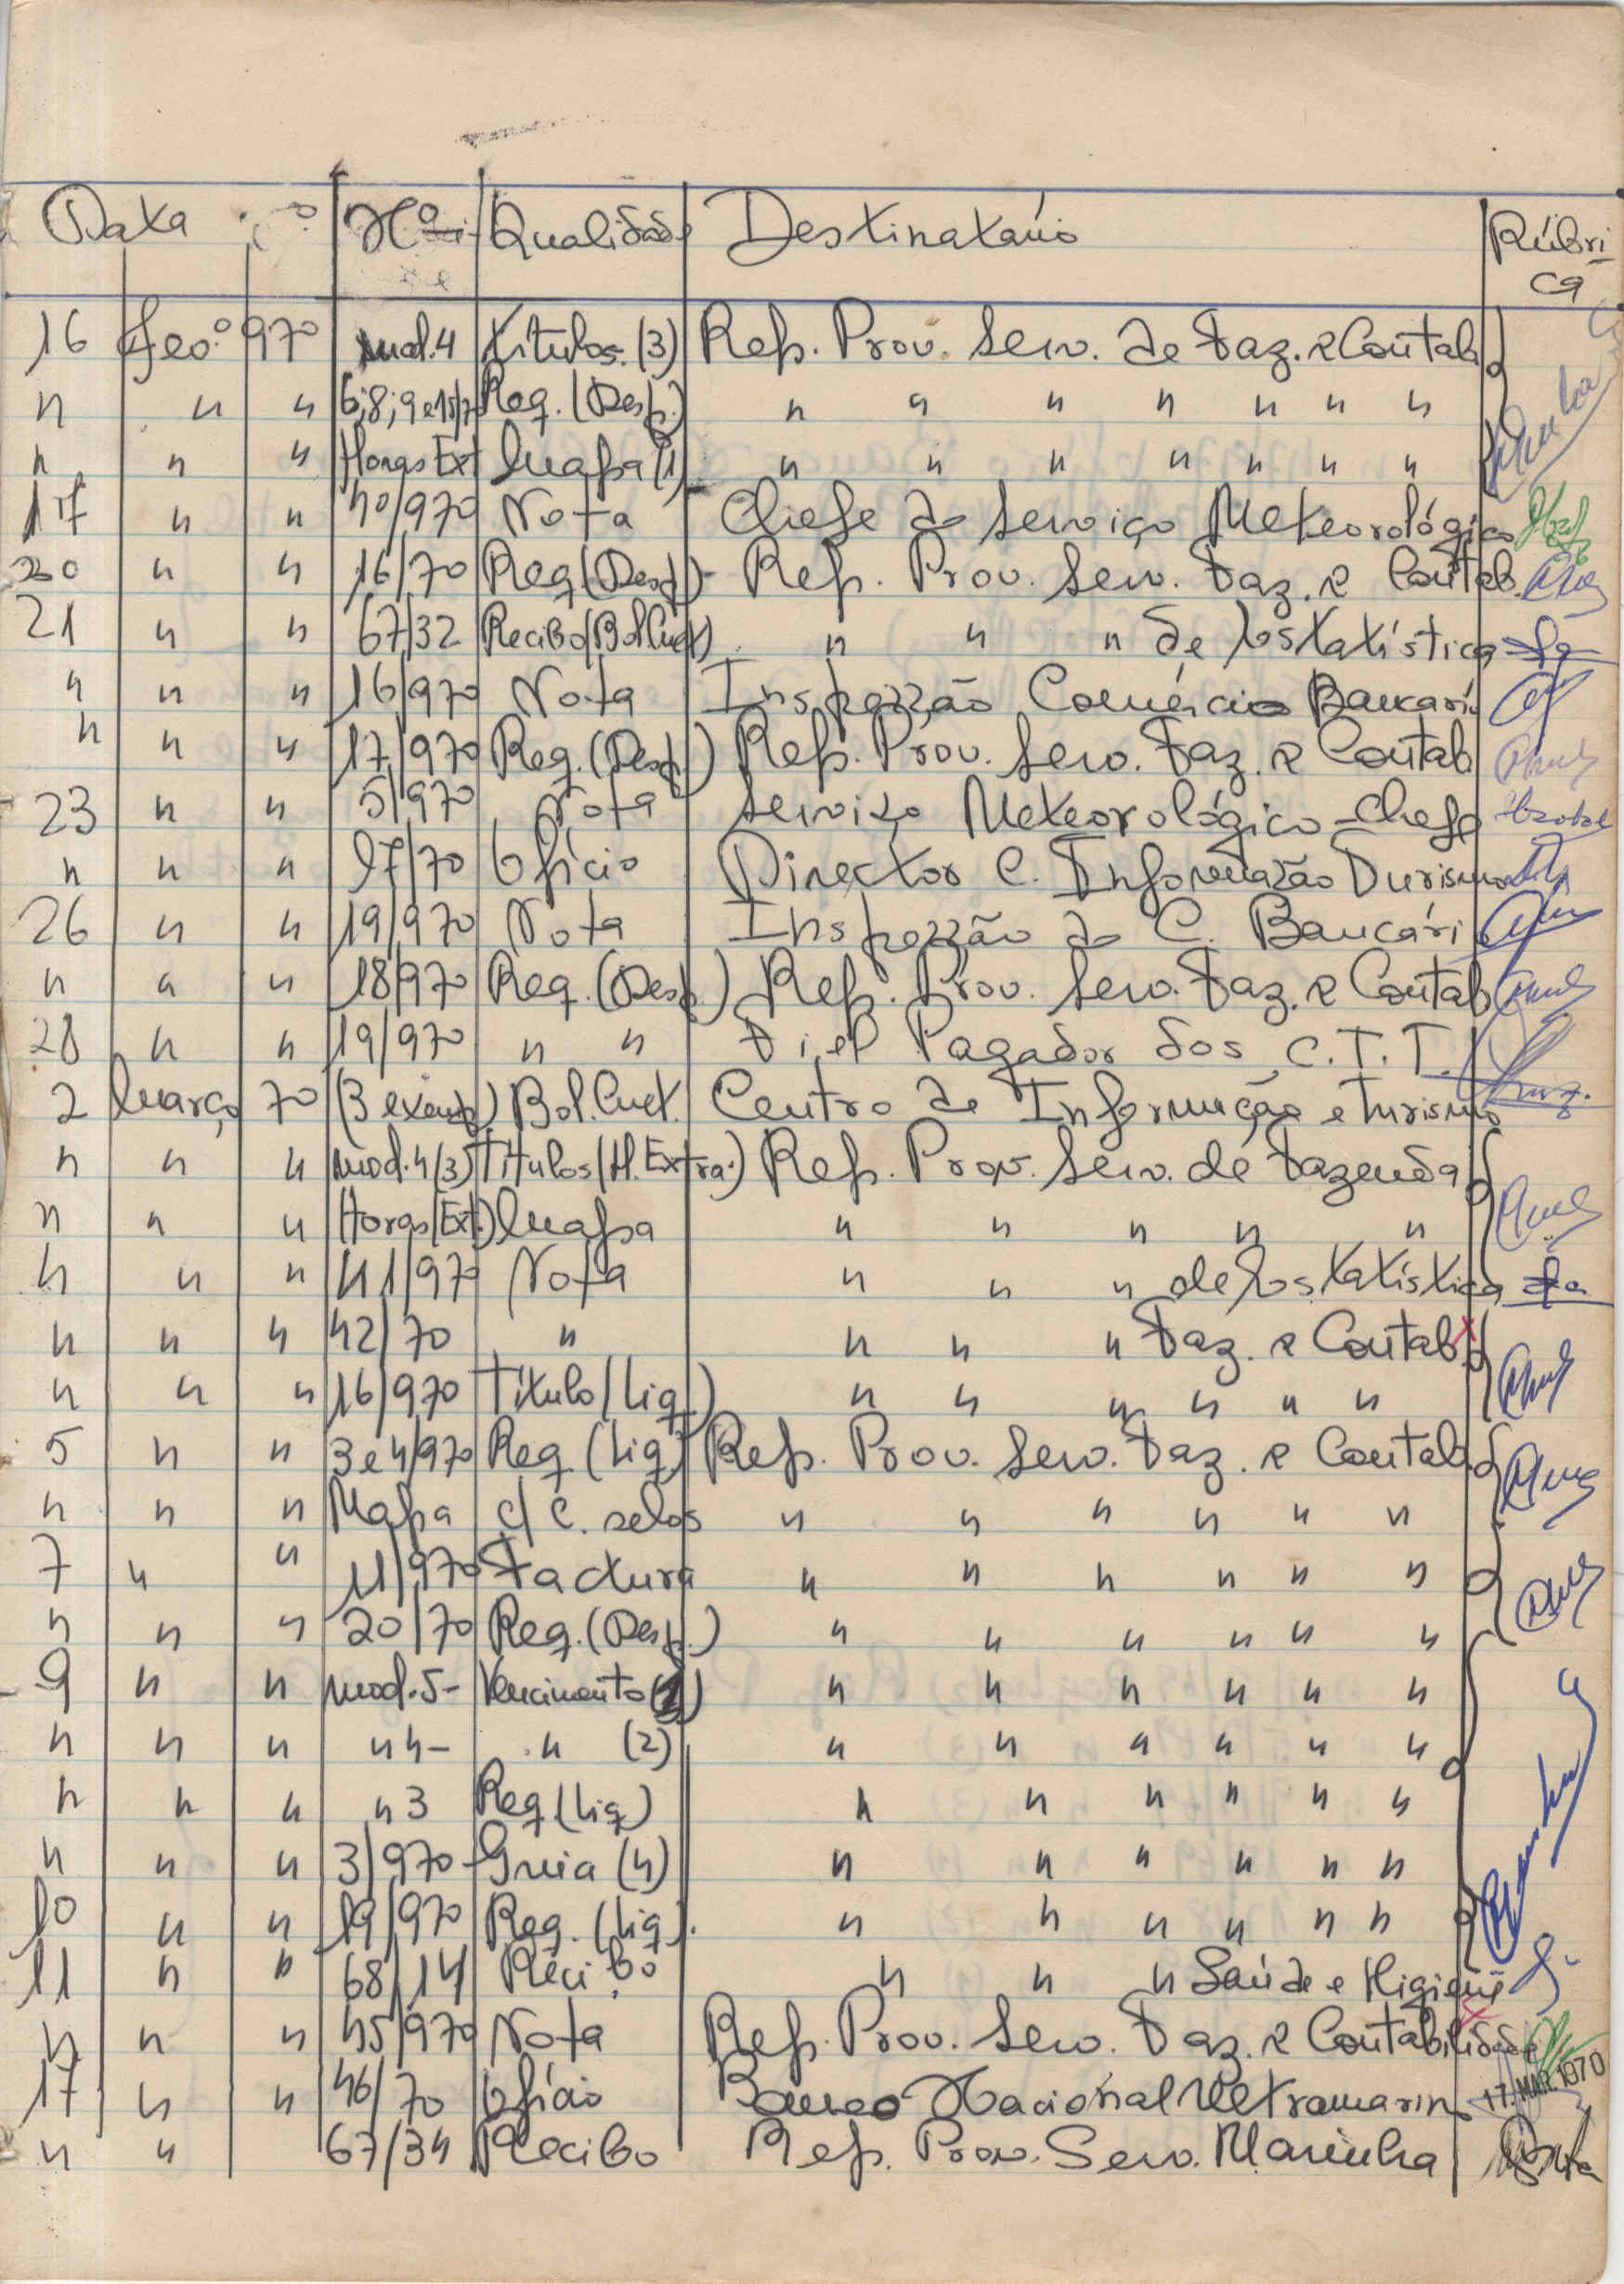 Data Nº Qualidade Destinatário Rúbri-
ca
16 Fev.º 970 mod.4 Títulos.(3) Rep. Prov. Serv. de Faz. e Contab
" " " 6;8;9e15/70 Req.(Desp.) " " " " " " "
" " " Horas Ext Mapa(1) " " " " " " "
17 " " 40/970 Nota Chefe do Serviço Meteorológico
20 " " 16/70 Req(Desp) Rep. Prov. Serv. Faz. e Contab.
21 " " 67/32 Recibo(Bol.Cuet) " " " de Estatística
" " " 16/970 Nota Inspecção Comércio Bancári
" " " 17/970 Req.(Desp.) Rep. Prov. Serv. Faz. e Contab
23 " " 5/970 Nota Serviço Meteorológico-Chefe
" " " 97/70 Ofício Director C. Informação Turismo
26 " " 19/970 Nota Inspecção do C. Bancári
" " " 18/970 Req.(Desp.) Rep. Prov. Serv. Faz. e Contab
28 " " 19/970 " " Fiel Pagador dos C.T.T.
2 Março 70 (3 exemp.) Bol.Cuet. Centro de Informação e Turismo
" " " mod.4(3) Títulos(H.Extra.) Rep. Prov. Serv. de Fazenda
" " " Horas(Ext.) Mapa " " " " "
" " " 41/970 Nota " " " de Estatística
" " " 42/70 " " " " Faz. e Contab.
" " " 16/970 Título(Liq.) " " " " " "
5 " " 3e4/970 Req.(Liq.) Rep. Prov. Serv. Faz. e Contab.
" " " Mapa c/ C. selos " " " " " "
7 " " 11/970 Factura " " " " " "
" " " 20/70 Req.(Desp.) " " " " " "
9 " " mod.5- Vencimento " " " " " "
" " " " 4- " (2) " " " " " "
" " " " 3 Req.(Liq) " " " " " "
" " " 3/970- Guia (4) " " " " " "
10 " " 19/970 Req.(Liq). " " " " " "
11 " " 68/14 Recibo " " " Saúde e Higiene
" " " 45/970 Nota Rep. Prov. Serv. Faz. e Contabilidade
17 " " 46/70 Ofício Banco Nacional Ultramarino 17.MAR.1970
" " 67/34 Recibo Rep. Prov. Serv. Marinha